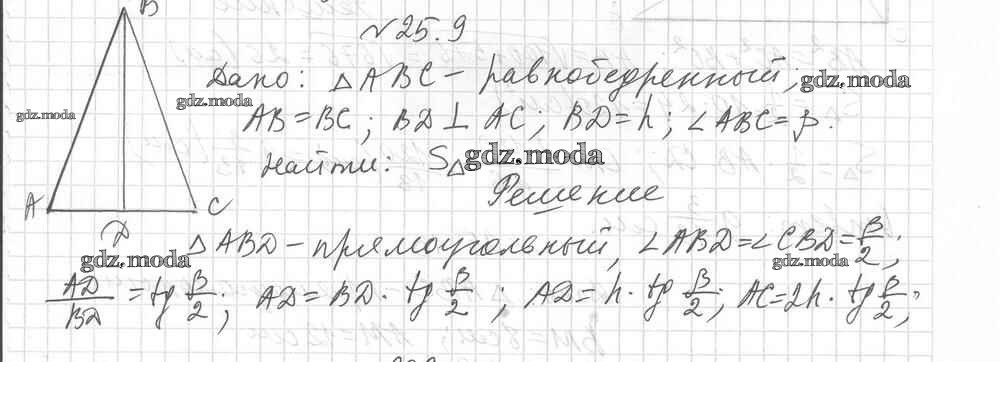 B
№25.9
Дано: △ABC – равнобедренный, gdz.moda
gdz.moda
gdz.moda
AB=BC; BD⊥AC; BD=h; ∠ABC=β.
Найти: S△ gdz.moda
Решение
A C
D
△ABD – прямоугольный, ∠ABD=∠CBD=β/2;
gdz.moda
gdz.moda
AD/BD = tg β/2; AD=BD · tg β/2; AD=h · tg β/2; AC=2h · tg β/2;